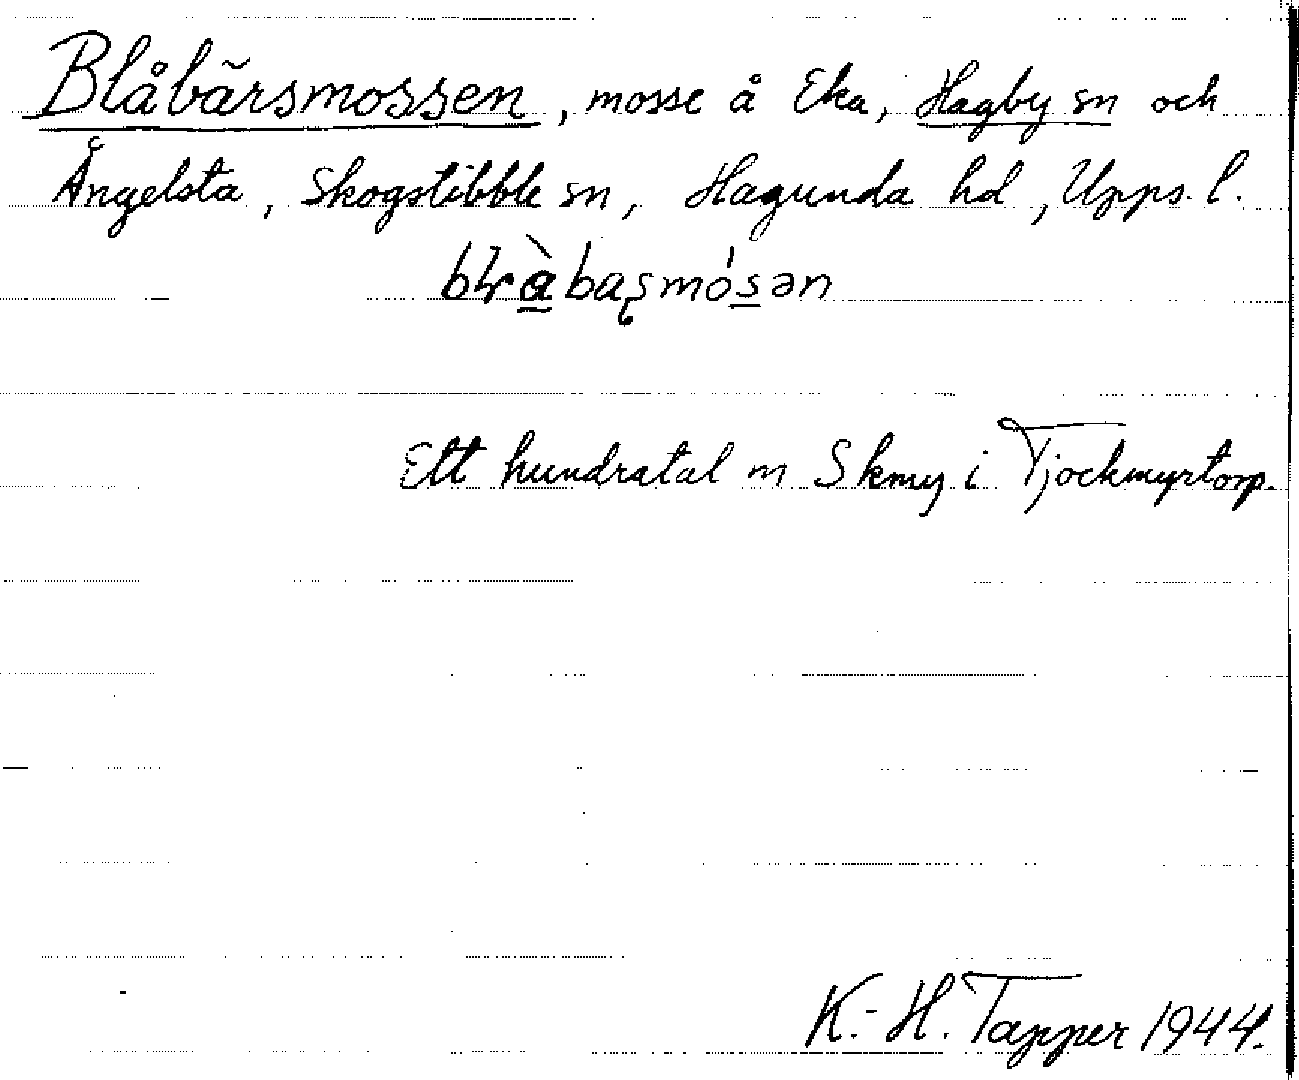 Blåbärsmossen, mosse å Eka, Hagby sn och
Ångelsta, Skogstibble sn, Hagunda hd, Upps. l.
Ett hundratal m S kmy i Tjockmyrtorp.
K.-H. Tapper 1944.